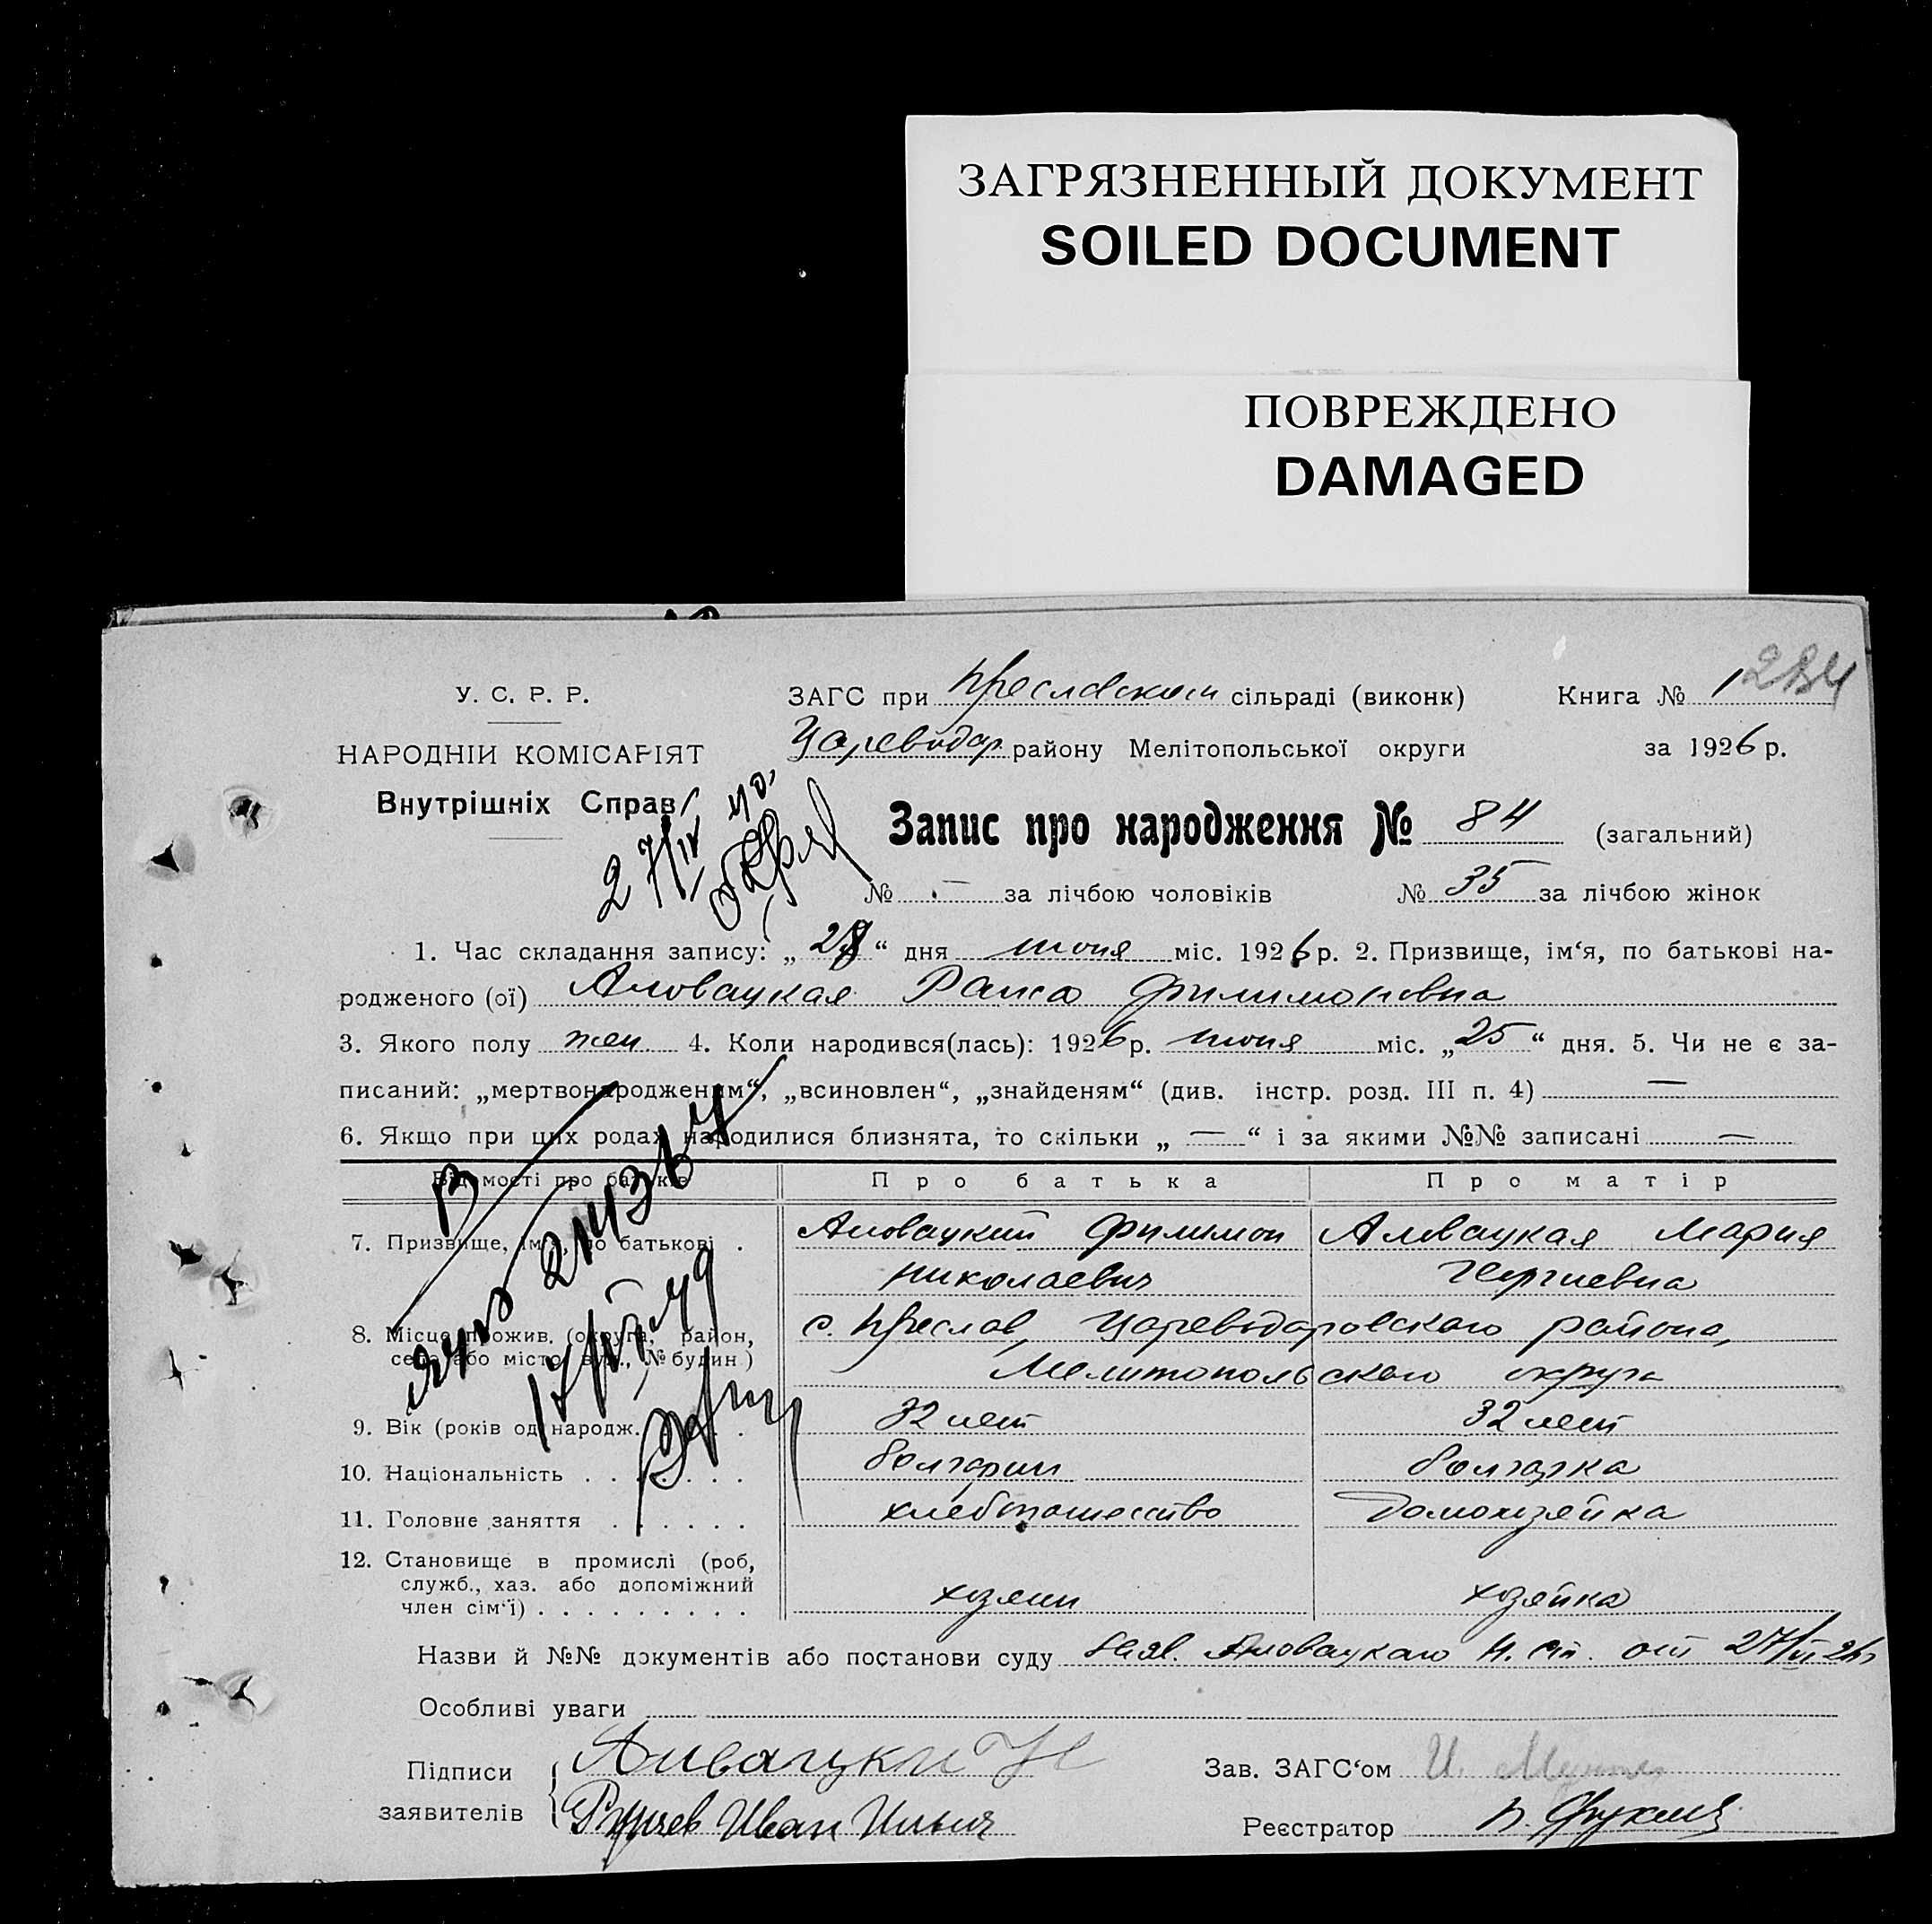 ЗАГРЯЗНЕННЫЙ ДОКУМЕНТ
SOILED DOCUMENT
ПОВРЕЖДЕНО
DAMAGED
У. С. Р. Р.
НАРОДНІЙ КОМІСАРІЯТ
Внутрішніх Справ
ЗАГС при Преславском сільраді (виконк)
Книга № 1
284
Цареводар. району Мелітопольської округи
за 1926 р.
Запис про народження № 84 (загальний)
№ — за лічбою чоловіків № 35 за лічбою жінок
1. Час складання запису: „ 27 “ дня июня міс. 1926 р. 2. Призвище, ім‘я, по батькові на-
родженого (ої) Ановацкая Раиса Филимоновна
3. Якого полу жен. 4. Коли народився(лась): 1926 р. июня міс. „ 25 “ дня. 5. Чи не є за-
писаний: „мертвонародженим“, „всиновлен“, „знайденям“ (див. інстр. розд. III п. 4) —
6. Якщо при цих родах народилися близнята, то скільки „ — “ і за якими №№ записані —
Відомості про батьків
Про батька
Про матір
7. Призвище, ім‘я, по батькові .
Ановацкий Филимон
Николаевич
Ановацкая Мария
Георгиевна
8. Місце прожив. (округа, район,
село або місто, вул., № будин)
с. Преслав, Цареводаровского района,
Мелитопольского округа
9. Вік (років од народж.
32 лет
32 лет
10. Національність . . . . . . .
болгарин
болгарка
11. Головне заняття . . . . . .
хлебопашество
домохозяйка
12. Становище в промислі (роб,
служб., хаз. або допоміжний
член сім‘ї) . . . . . . . . .
хозяин
хозяйка
Назви й №№ документів або постанови суду заяв. Ановацкаго Н. от 27/VI 26
Особливі уваги
Підписи
заявителів
Иван Ильич
Зав. ЗАГС‘ом И.
Реєстратор